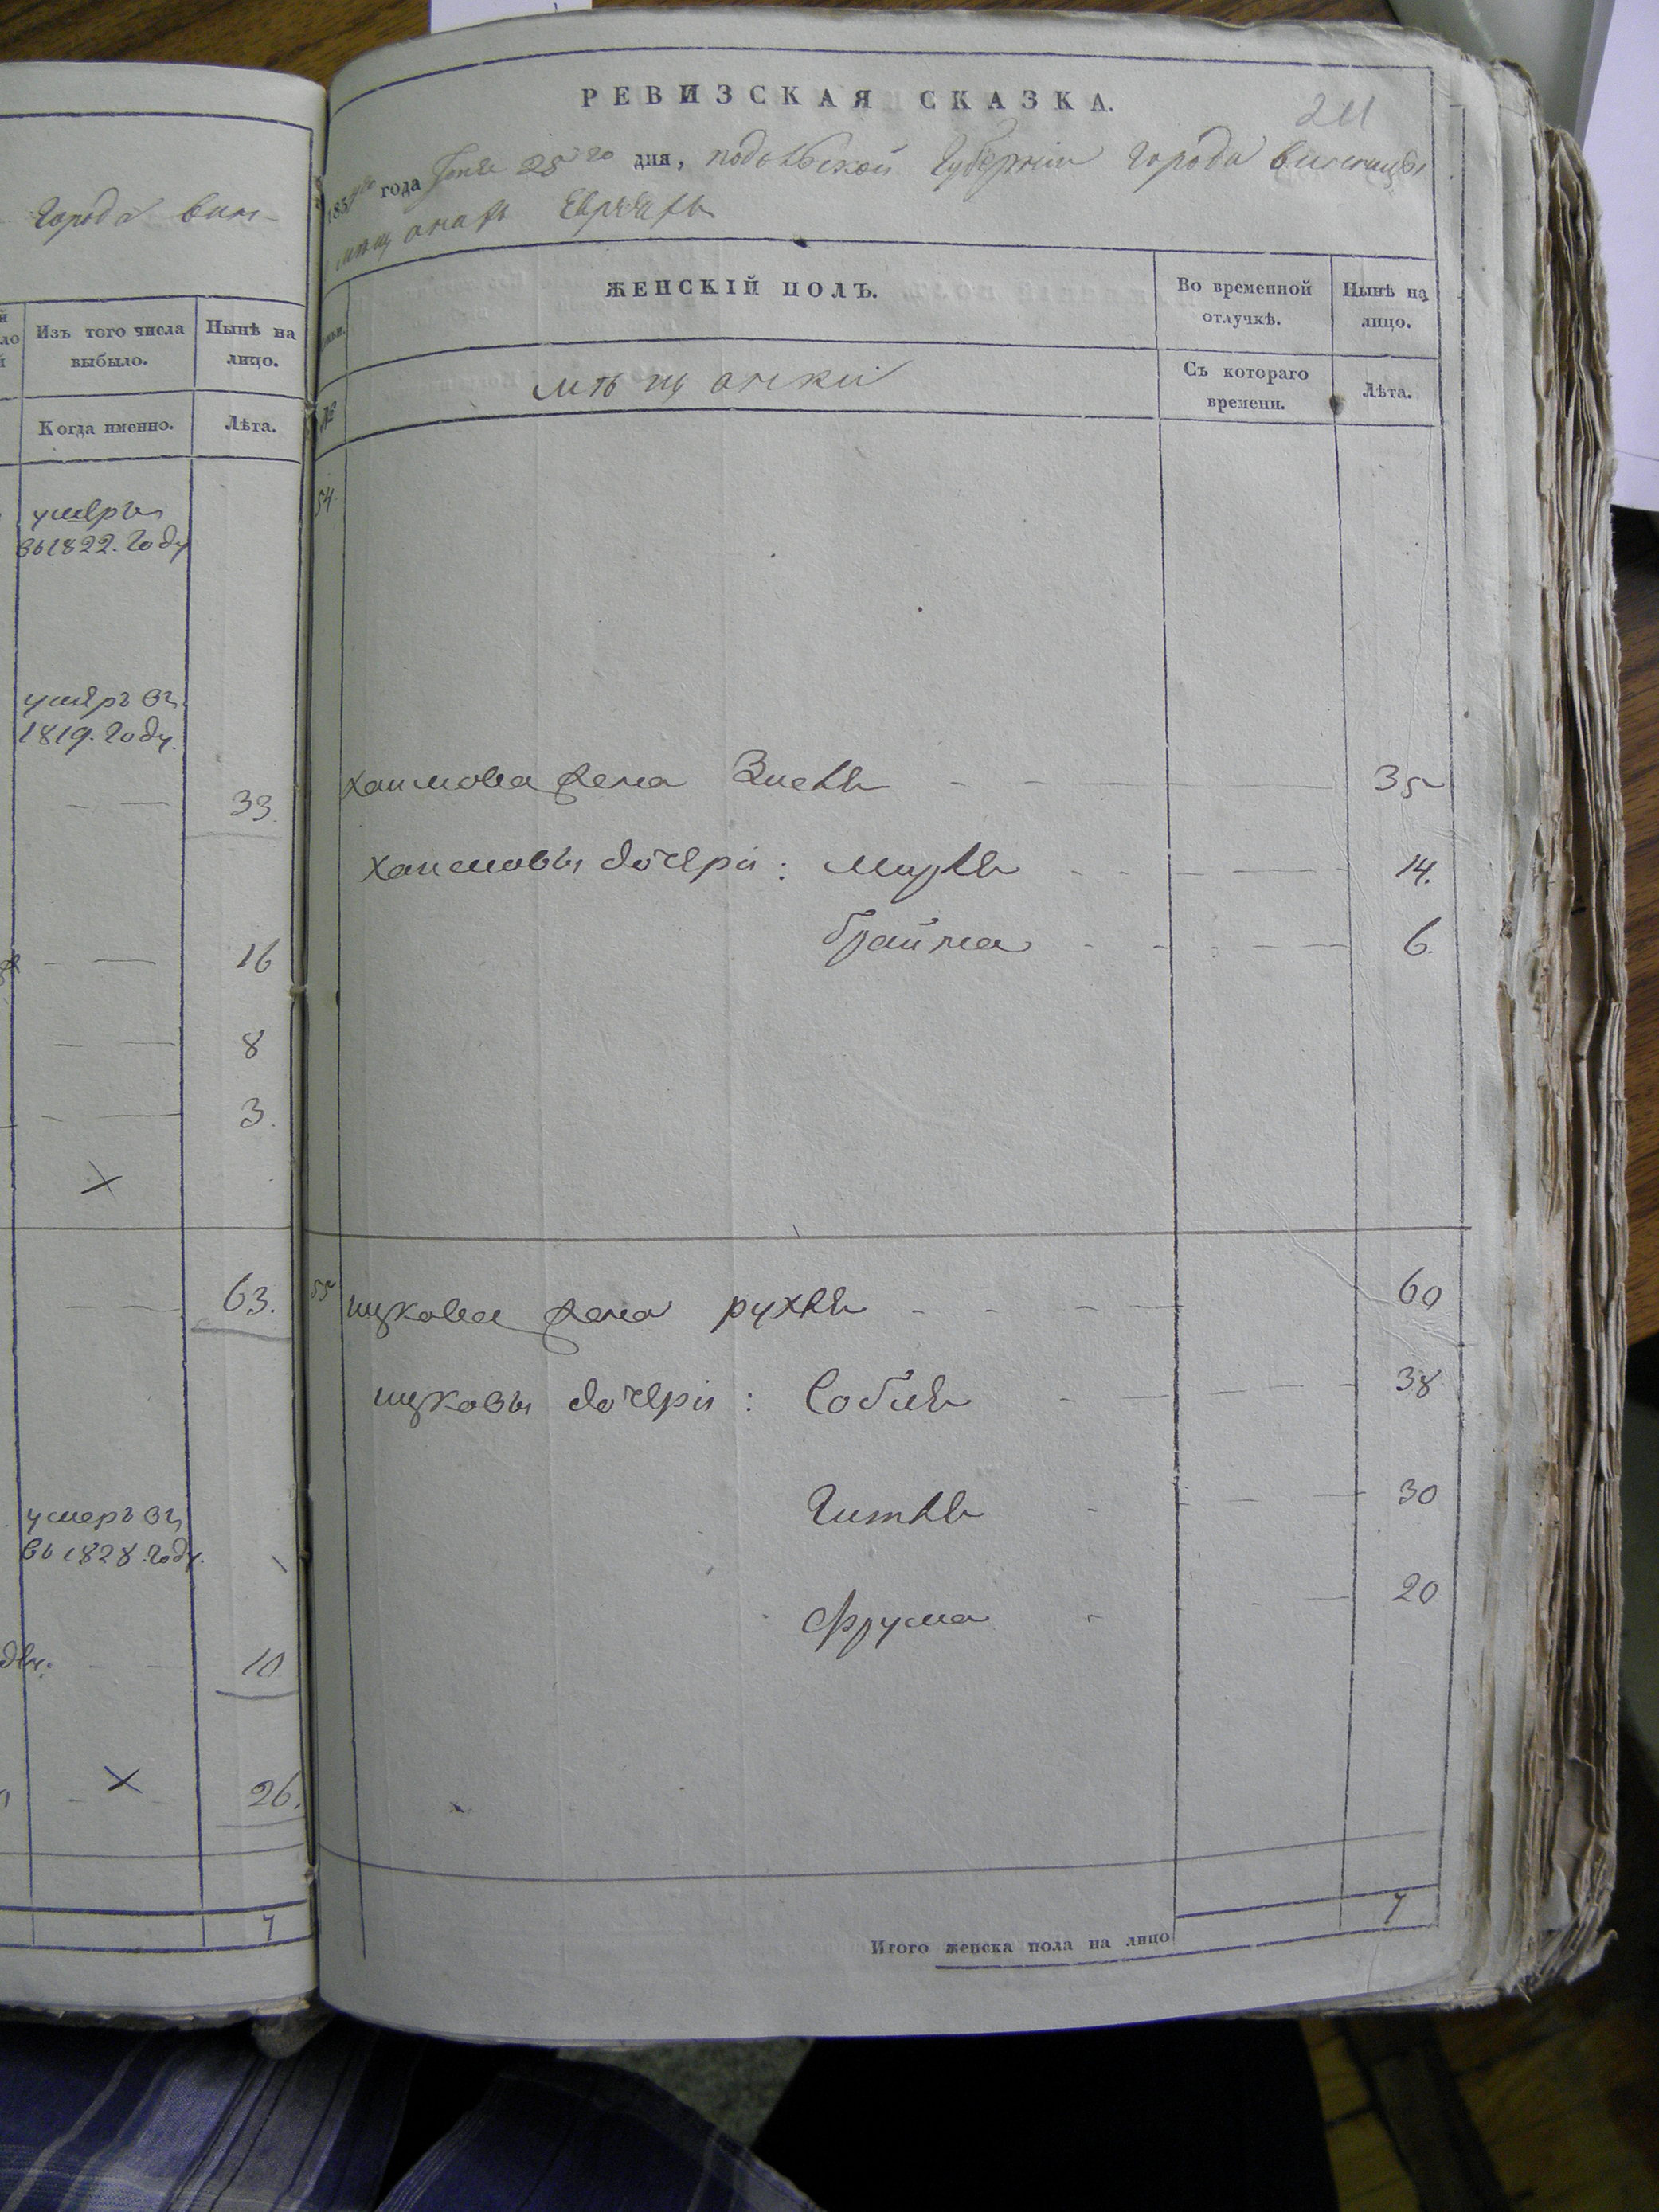 Города Вин-
Изъ того числа
выбыло.
Нынѣ на
лицо.
Когда именно.
Лѣта.
умеръ
въ 1822. году
умеръ въ
1819. году.
33.
16
8
3.
×
63.
умеръ въ
въ 1828. году.
10
×
26.
7
РЕВИЗСКАЯ СКАЗКА.
211
183 года 25го дня, подольской Губерніи города винницы
мѣщанахъ Евреяхъ
ЖЕНСКІЙ ПОЛЪ.
Во временной
отлучкѣ.
Нынѣ на
лицо.
№
мѣщанки
Съ котораго
времени.
Лѣта.
54.
хаимова жена 35
хаимовы дочери: 14.
брайна 6.
55 ицкова жена рухль 60
ицковы дочери: 38
Гитль 30
Фрума 20
Итого женска пола на лицо 7